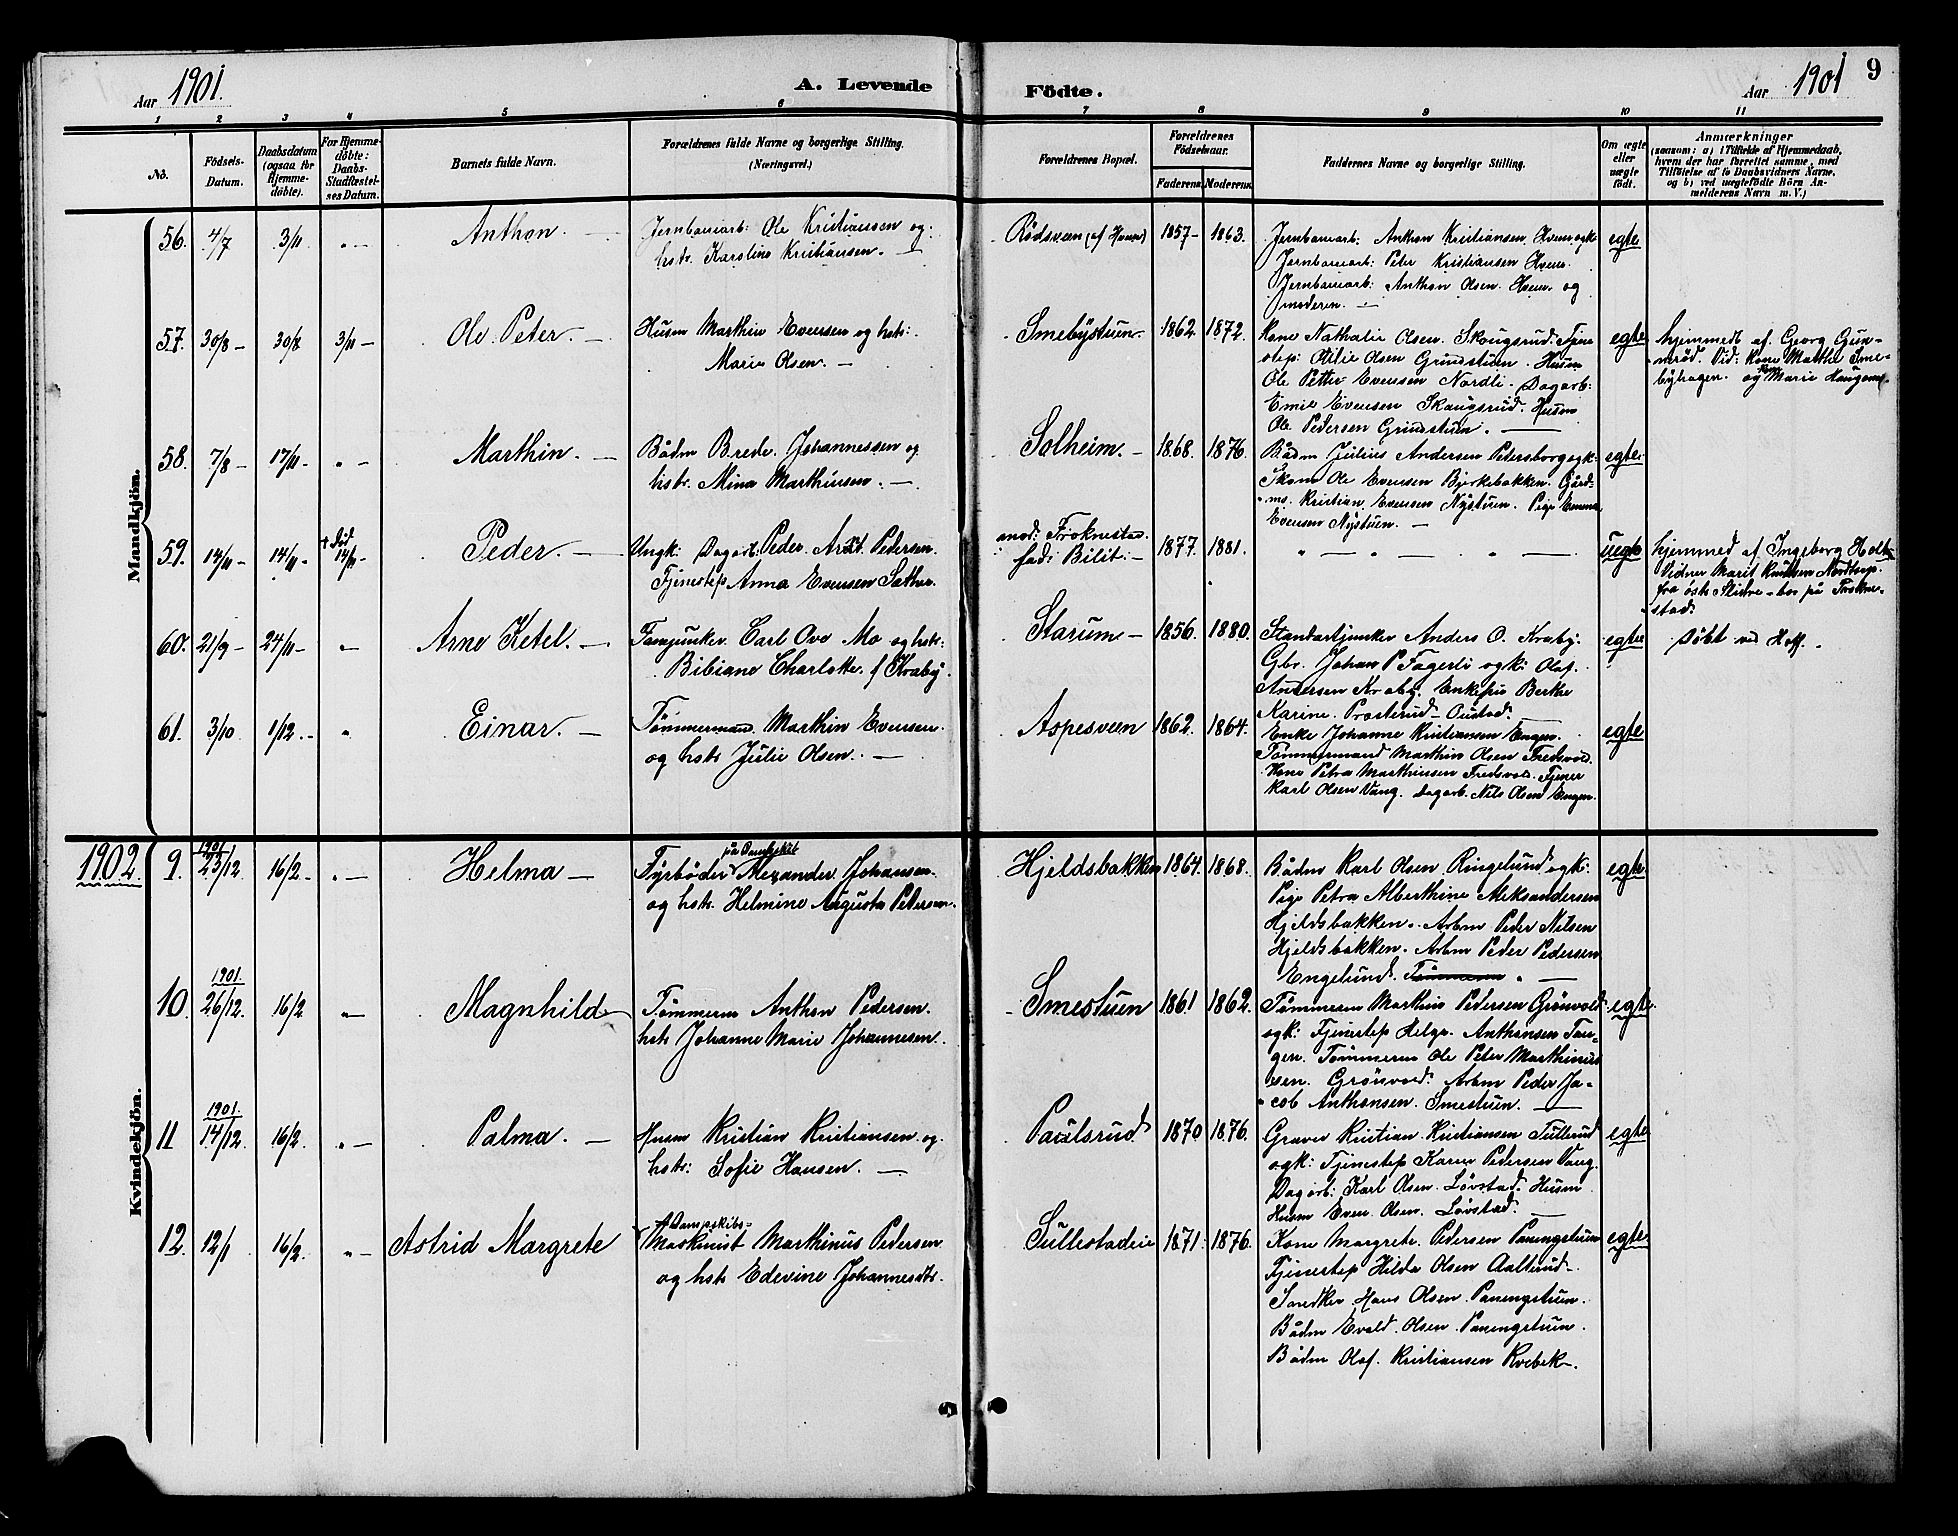 Aar 1901.
A. Levende
Födte.
Aar 1901
9
1 2 3 4 5 6 7 8 9 10 11
No.
Födsels-
Datum.
Daabsdatum
(ogsaa for
Hjemme-
döbte).
For Hjemme-
döbte:
Daabs-
Stadfæstel-
ses Datum.
Barnets fulde Navn.
Forældrenes fulde Navne og borgerlige Stilling.
(Næringsvei.)
Forældrenes Bopæl.
Forældrenes
Födselsaar.
Faderens.
Moderens.
Faddernes Navne og borgerlige Stilling.
Om ægte
eller
uægte
födt.
Anmærkninger
(saasom: a) i Tilfælde af Hjemmedaab,
hvem der har forrettet samme, med
Tilföielse af to Daabsvidners Navne,
og b) ved uægtefödte Börn An-
melderens Navn m. V.)
Mandkjön.
56. 4/7 3/11 " — Anthon. —
Jernbanearb: Ole Kristiansen og:
hstr. Karoline Kristiansen. —
Rødsveen (af Hveem) 1857 - 1863.
Jernbanearb: Anthon Kristiansen Hveem ogk
Jernbanearb: Peter Kristiansen Hveem.
Jernbanearb: Anthon Olsen. Hveem. og
moderen. —
egte
57. 30/8 - 30/8 3/11 - Ole Peter. —
Husm Marthin Evensen og hstr:
Marie Olsen. —
Smebystuen. 1862 1872.
Kone Nathalie Olsen. Skougsrud. Tjene
step: Otilie Olsen Grindstuen. Husm
Ole Petter Evensen Nordli. Dagarb:
Emil Evensen Skaugsrud. Husm
Ole Pedersen Grindstuen. —
egte
hjemmedt af Georg Gun-
nerød. Vid: Kone Marthe Sme-
byhagen. og Kone Marie Haugom.
58. 7/8 - 17/11 - " — Marthin. —
Bådm Brede Johannessen og
hstr. Mina Marthinsen. —
Solheim. — 1868. 1876.
Bådm Julius Andersen Petersborg ogk:
Skom Ole Evensen Bjerkebakken. Gård-
ms. Kristian Evensen Nystuen. Pige Emma
Evensen Nystuen. —
egte.
59. 14/11 - 14/11 - + Død 14/11 - Peder. —
Ungk: Dagarb: Peder Arnt Pedersen.
Tjenestep Anna Evensen Sathe.
mod: Froknestad.
fad: Bilit. — 1877. 1881.
" — " — " —
uegte
hjemmed af Ingeborg Holte
Vidner Marit Knutsen Nordtorp.
fra østr Slidre - bor på Frokne-
stad.
60. 21/9 - 24/11 - " Arne Ketel. —
Fanejunker Carl Ove Mo og hstr:
Bibiane Charlotte f Kraby.
Starum — 1856. 1880.
Standartjunker Anders O. Kraby.
Gbr. Johan P Fagerli ogk: Olaf.
Andersen Kraby. Enkefru Berthe
Karine. Prosterud - Oustad. —
egte
Døbt ved Hoff.
61. 3/10 1/12. - " Einar. —
Tømmermand Marthin Evensen.
og hstr Julie Olsen. —
Aspesveen 1862. 1864.
Enke Johanne Kristiansen Engen.
Tømmermand Marthin Olsen Fredsvold.
Kone Petra Marthinsen Fredsvold. Tjener
Karl Olsen Vang. Dagarb. Nils Olsen Engen.
egte
1902.
Kvindekjön.
9. 1901 23/12 16/2 - " — Helma —
på Dampskib
Fyrbøder Alexander Johansen.
og hstr. Helmine Augusta Petersen.
Hjeldsbakken 1864. 1868.
Bådm Karl Olsen Ringelund ogk:
Pige Petra Alberthine Aleksandersen
Hjeldsbakken. Arbm Peder Nilsen
Hjeldsbakken. Arbm Peder Pedersen
Engelund. —
egte
10. 1901. 26/12. 16/2 " Magnhild
Tømmerm Anthon Pedersen.
hstr Johanne Marie Johannesen.
Smestuen 1861 1862.
Tømmerm Marthin Pedersen Grönvold
ogk: Tjenestep Helga Anthonsen Tan-
gen. Tømmerm Ole Peter Marthinius
sen. Grönvold. Arbm Peder Ja-
cob Anthonsen. Smestuen. —
egte.
11 1901. 14/12 16/2. " — Palma. —
Husm Kristian Kristiansen og
hstr: Sofie Hansen. —
Paulsrud 1870 1876.
Graver Kristian Kristiansen Tullerud
ogk: Tjenestep Karen Pedersen Vang.
Dagarb: Karl Olsen Løvstad. Husm
Husm Even Olsen. Løvstad. —
egte
12. 12/1 16/2. " — Astrid Margrete
Dampskibs-
Maskinist Marthinus Pedersen
og hstr Edevine Johannesdtr.
Sullestadeie 1871. 1876.
Kone Margrete Pedersen Panengstuen
Tjenestep Hilda Olsen Aalterud.
Snedker Hans Olsen Panengstuen.
Bådm Evald. Olsen Panengstuen.
Bådm Olaf Kristiansen Kvebek.
egte